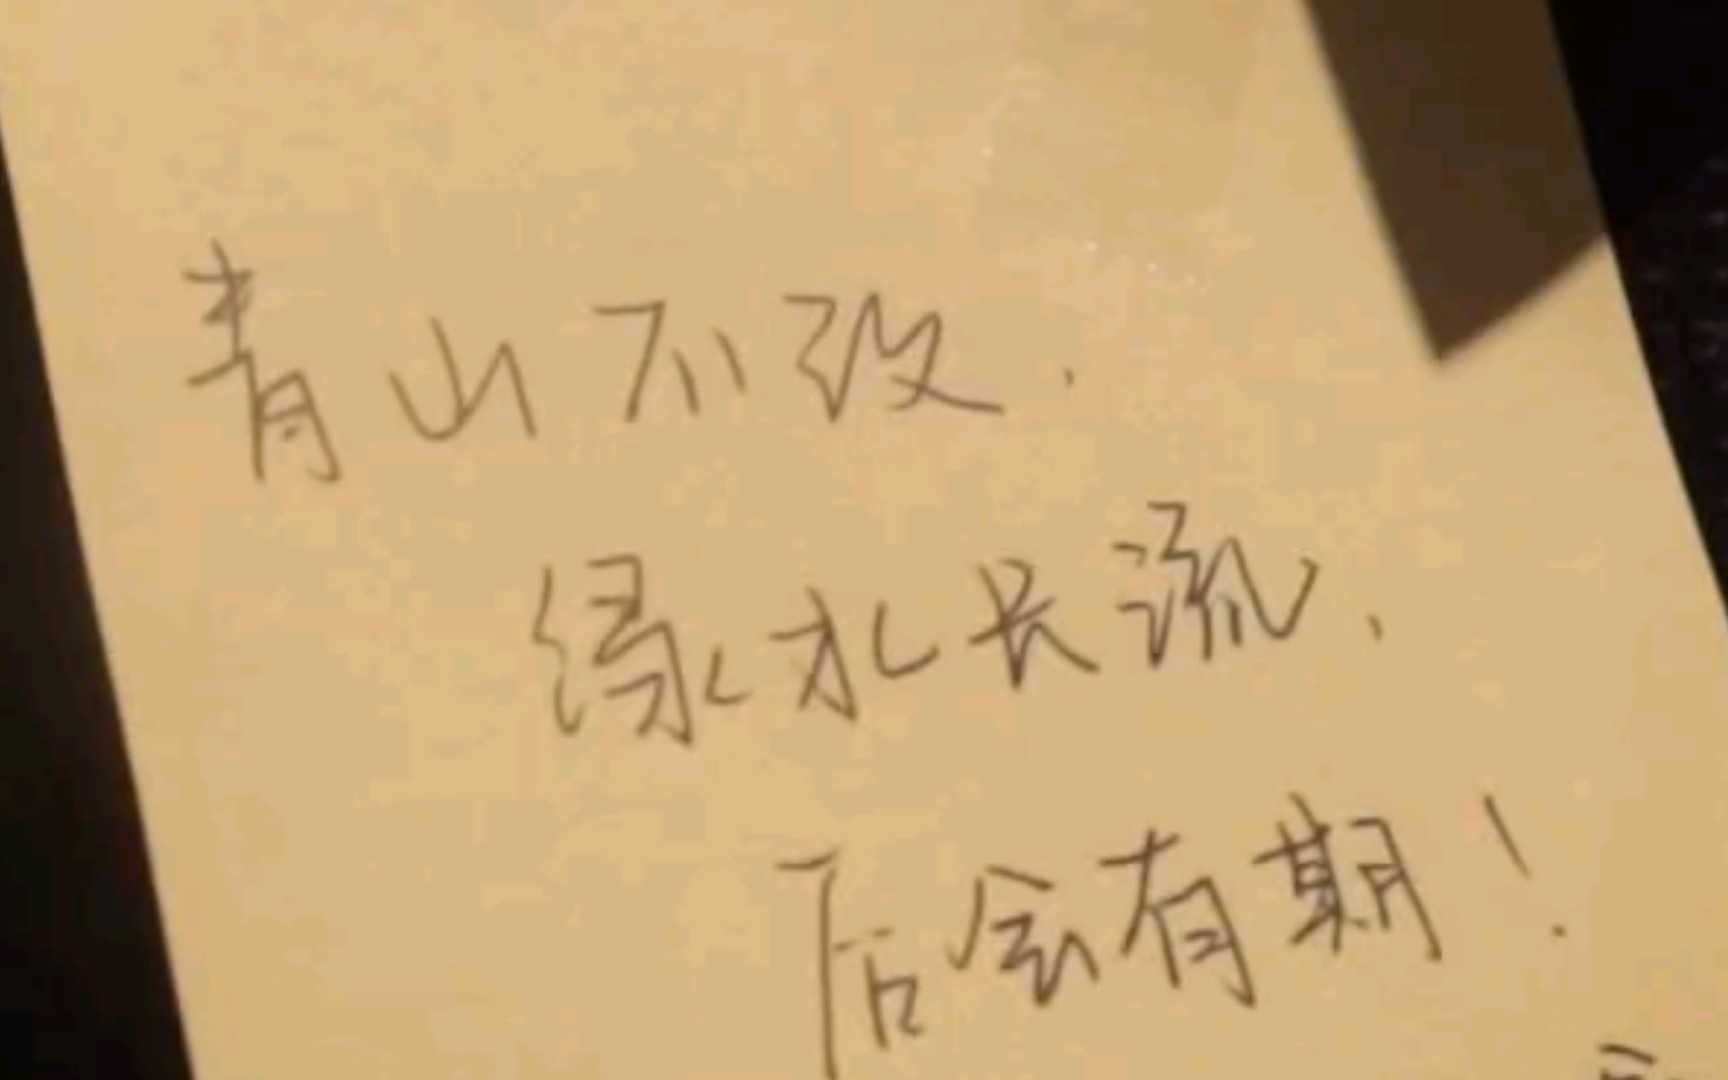 青山不改.
绿水长流、
后会有期!